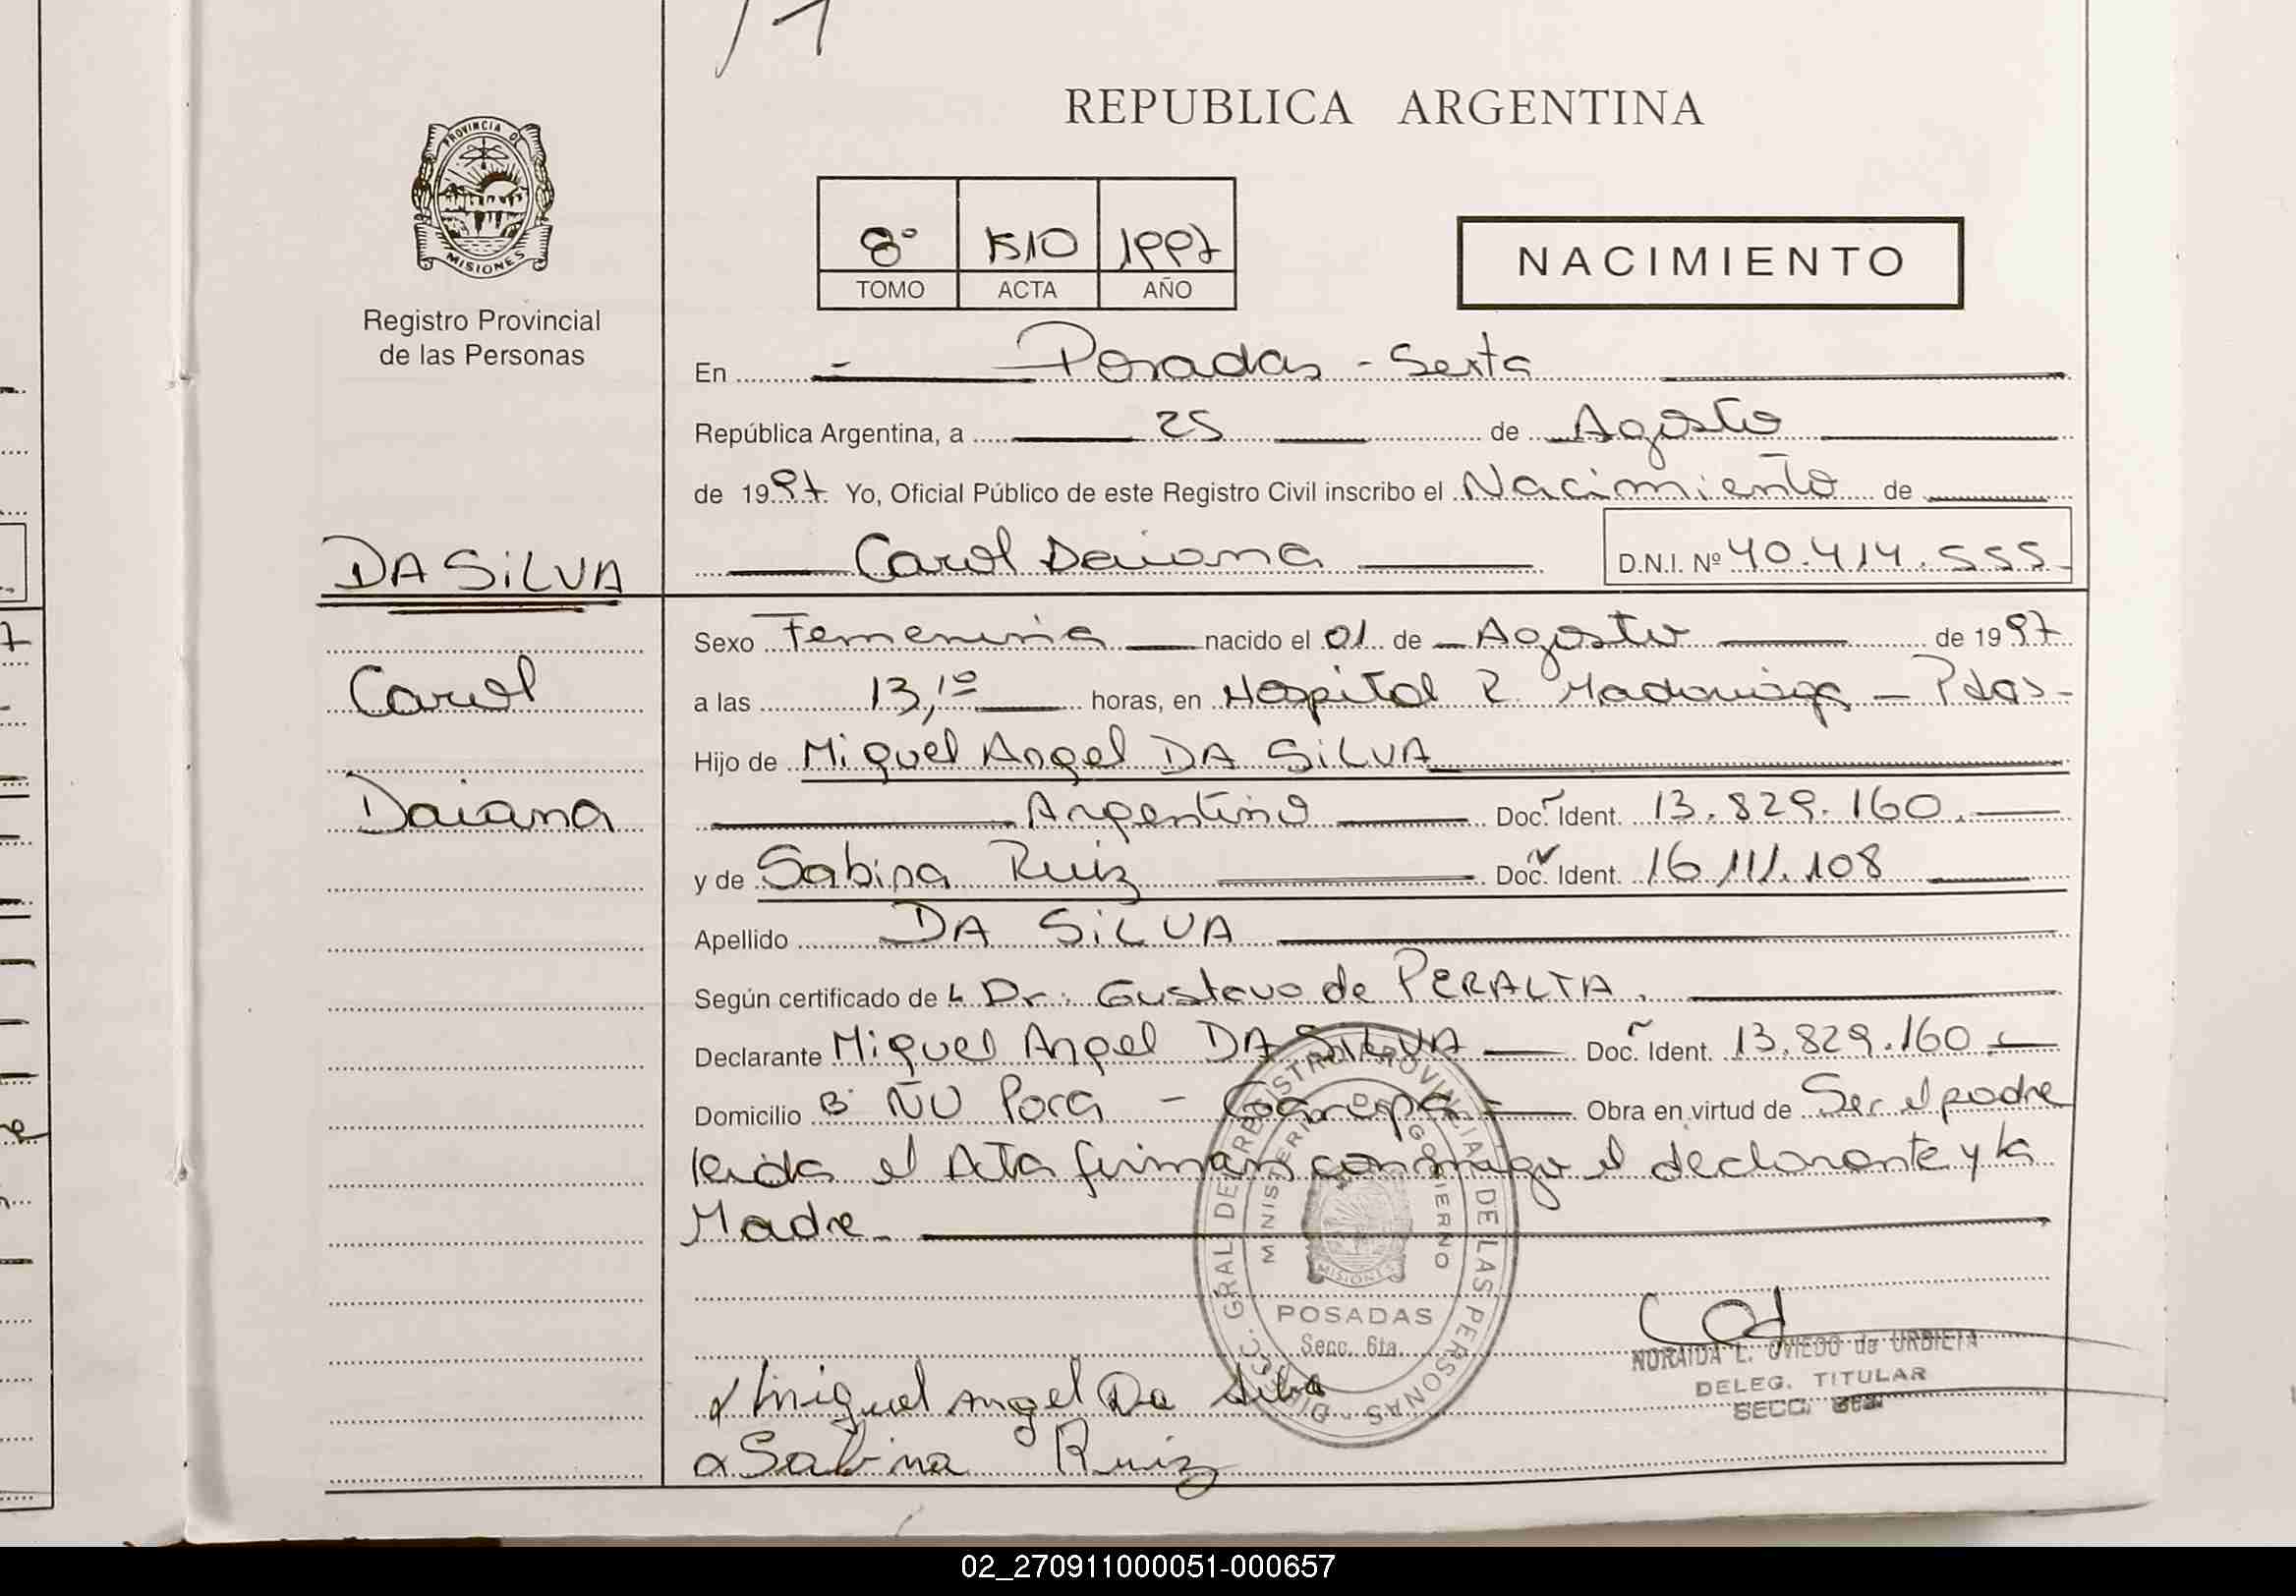 /1
REPUBLICA ARGENTINA
PROVINCIA DE
MISIONES
Registro Provincial
de las Personas
8° 1510 1997
TOMO ACTA AÑO
NACIMIENTO
En - Posadas - Sexta
República Argentina, a 25 de Agosto
de 1997 Yo, Oficial Público de este Registro Civil inscribo el Nacimiento de
DA SiLVA
Carol Daiana D.N.I. Nº 40.414.555
Sexo Femenina nacido el 01 de Agosto de 1997
Carol
a las 13,10 horas, en Hospital R. Madariaga - Pdas-
Hijo de Miguel Angel DA SiLVA
Daiana
Argentino Doc. Ident. 13.829.160
y de Sabina Ruiz Doc. Ident. 16.111.108
Apellido DA SiLVA
Según certificado de L Dr: Gustavo de PERALTA.
Declarante Miguel Angel DA SILVA Doc. Ident. 13.829.160
Domicilio B° ÑU Pora - Garupá - Obra en virtud de Ser el padre
leída el Acta firman conmigo el declarante y la
Madre.
DIRECC. GRAL DEL REGISTRO PROVINCIAL DE LAS PERSONAS
MINISTERIO DE GOBIERNO
MISIONES
POSADAS
Secc. 6ta.
NORAIDA L. OVIEDO de URBIETA
DELEG. TITULAR
SECC. 6ta.
Miguel Angel Da Silva
Sabina Ruiz
02_270911000051-000657